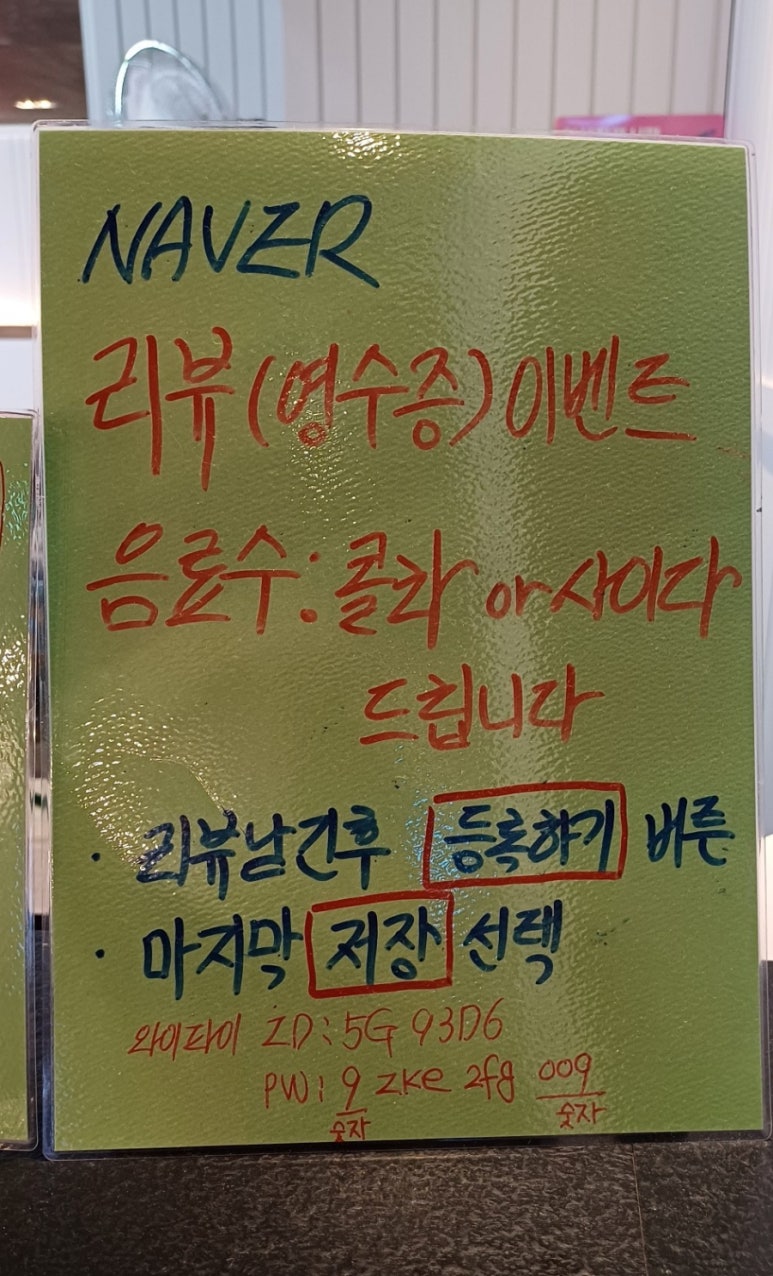 NAVER
리뷰(영수증)이벤트
음료수: 콜라 or 사이다
드립니다
· 리뷰남긴후 등록하기 버튼
· 마지막 저장 선택
와이파이 ID: 5G 93D6
PW: 9 zke 2fg 009
숫자 숫자